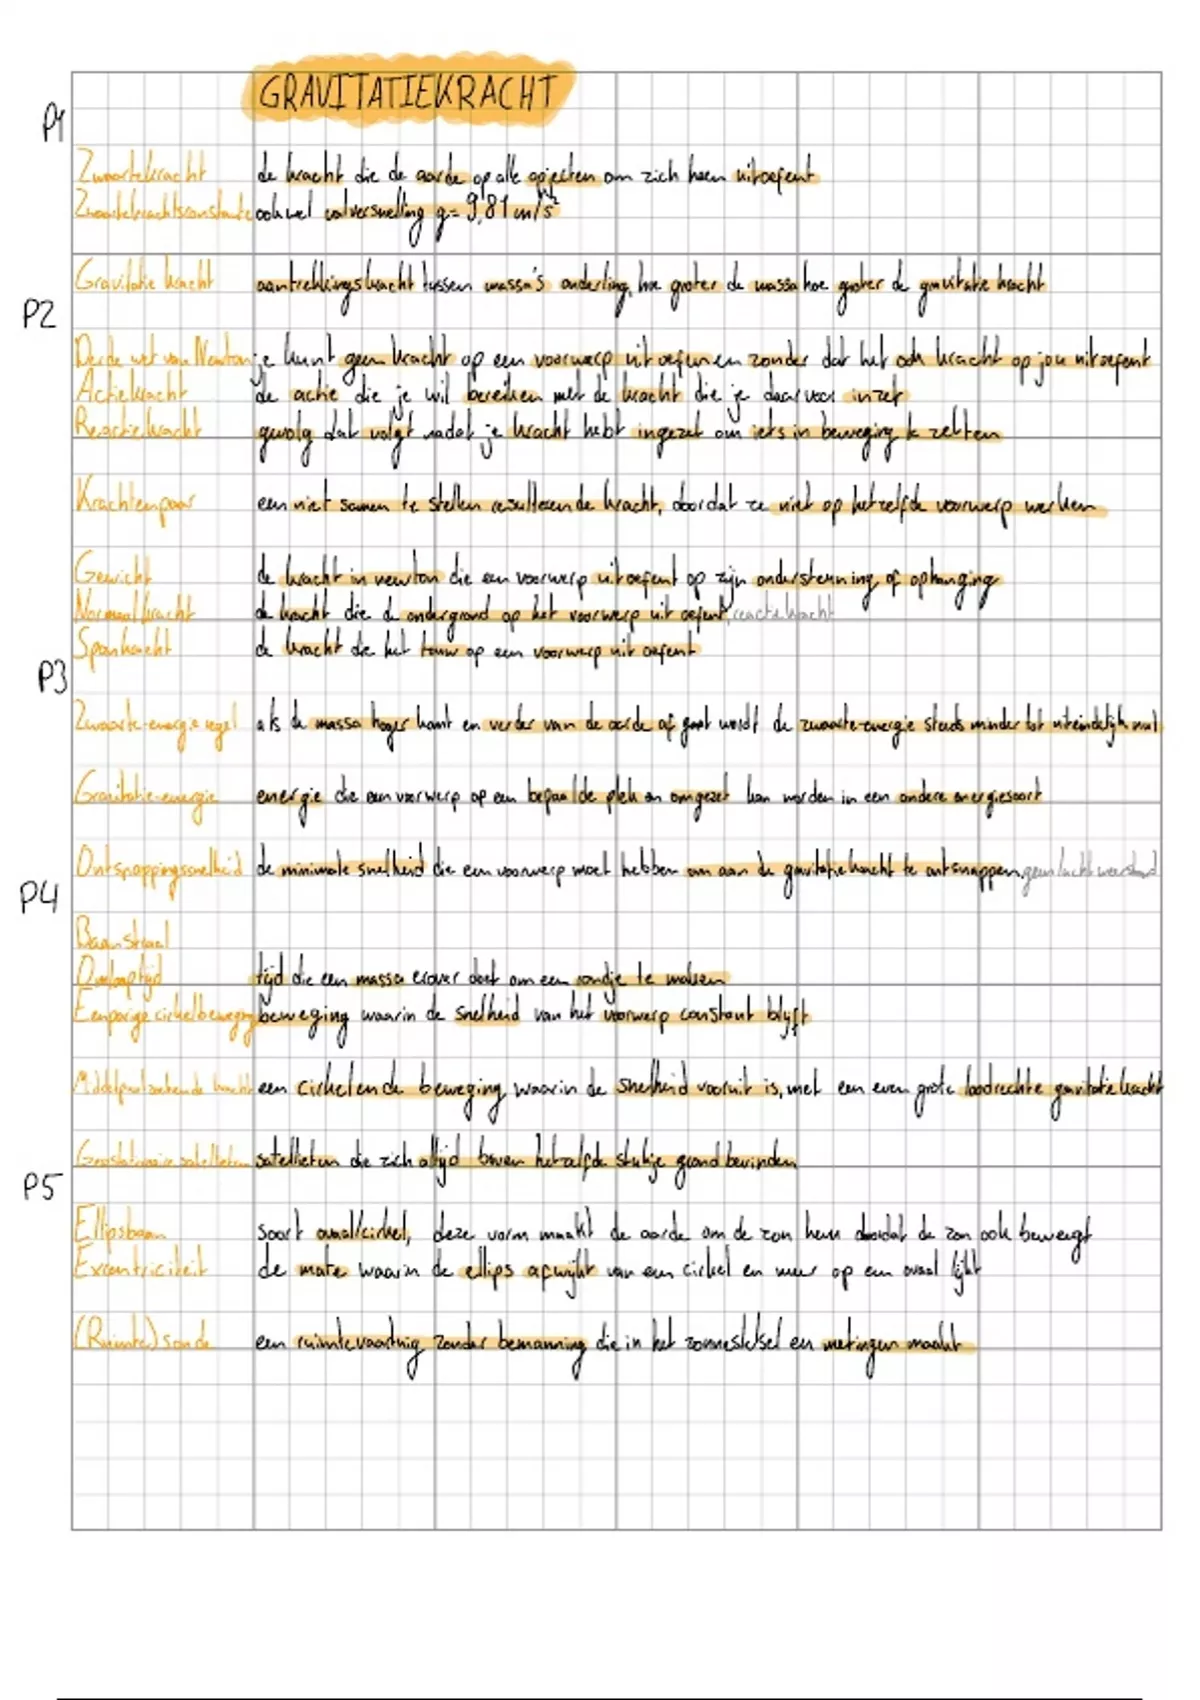 GRAVITATIEKRACHT
P1
Zwaartekracht de kracht die de aarde op alle objecten om zich heen uitoefent
Zwaartekrachtsconstante ook wel valversnelling g= 9,81 m/s²
Gravitatie kracht aantrekkingskracht tussen massa's onderling, hoe groter de massa hoe groter de gravitatie kracht
P2
Derde wet van Newton je kunt geen kracht op een voorwerp uit oefenen zonder dat het ook kracht op jou uitoefent
Actiekracht de actie die je wil bereiken met de kracht die je daarvoor inzet
Reactiekracht gevolg dat volgt nadat je kracht hebt ingezet om iets in beweging te zetten
Krachtenpaar een niet samen te stellen resulterende kracht, doordat ze niet op hetzelfde voorwerp werken
Gewicht de kracht in newton die een voorwerp uitoefent op zijn ondersteuning of ophanging
Normaalkracht de kracht die de ondergrond op het voorwerp uit oefent, reactiekracht
Spankracht de kracht die het touw op een voorwerp uit oefent
P3
Zwaarte-energie regel als de massa hoger komt en verder van de aarde af gaat wordt de zwaarte-energie steeds minder tot uiteindelijk nul
Gravitatie-energie energie die een voorwerp op een bepaalde plek en omgezet kan worden in een andere energiesoort
Ontsnappingssnelheid de minimale snelheid die een voorwerp moet hebben om aan de gravitatiekracht te ontsnappen, geen luchtweerstand
P4
Baanstraal
Omlooptijd tijd die een massa erover doet om een rondje te maken
Eenparige cirkelbeweging beweging waarin de snelheid van het voorwerp constant blijft
Middelpuntzoekende kracht een cirkelende beweging waarin de snelheid vooruit is, met een even grote loodrechte gravitatiekracht
Geostationaire satellieten satellieten die zich altijd boven hetzelfde stukje grond bevinden
P5
Ellipsbaan soort ovaal/cirkel, deze vorm maakt de aarde om de zon heen doordat de zon ook beweegt
Excentriciteit de mate waarin de ellips afwijkt van een cirkel en meer op een ovaal lijkt
(Ruimte)sonde een ruimtevaartuig zonder bemanning die in het zonnestelsel en metingen maakt